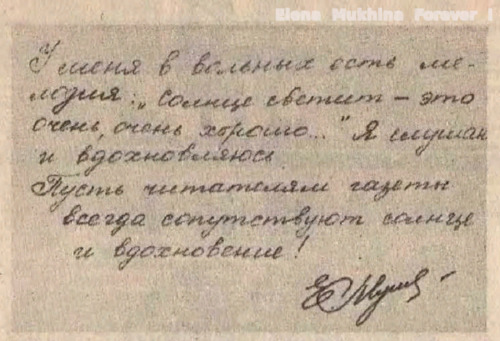 Elena Mukhina Forever !
У меня в вольных есть ме-
лодия: „Солнце светит – это
очень, очень хорошо..." Я слушаю
и вдохновляюсь.
Пусть читателям газеты
всегда сопутствуют солнце
и вдохновение!